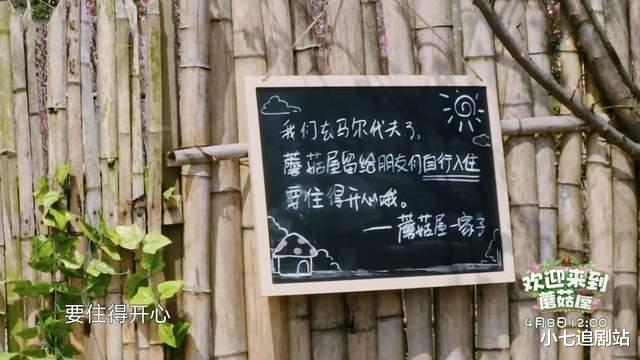 我们去马尔代夫了。
蘑菇屋留给朋友们自行入住
要住得开心哦。
一蘑菇屋一家子
要住得开心
欢迎来到
蘑菇屋
4月8日12:00
小七追剧站